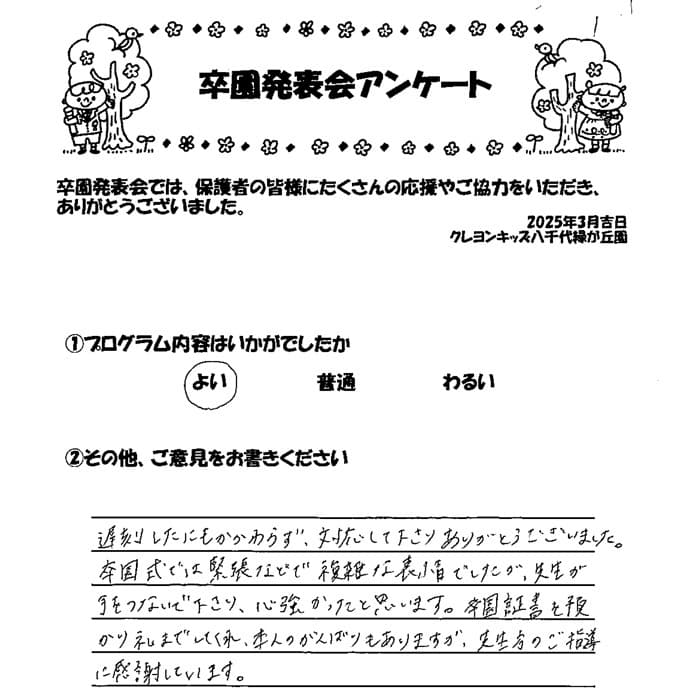 卒園発表会アンケート
卒園発表会では、保護者の皆様にたくさんの応援やご協力をいただき、
ありがとうございました。
2025年3月吉日
クレヨンキッズ八千代緑が丘園
①プログラム内容はいかがでしたか
よい 普通 わるい
②その他、ご意見をお書きください
遅刻したにもかかわらず、対応して下さりありがとうございました。
卒園式では緊張などで複雑な表情でしたが、先生が
手をつないで下さり、心強かったと思います。卒園証書を預
かり礼までしてくれ、本人のがんばりもありますが、先生方のご指導
に感謝しています。